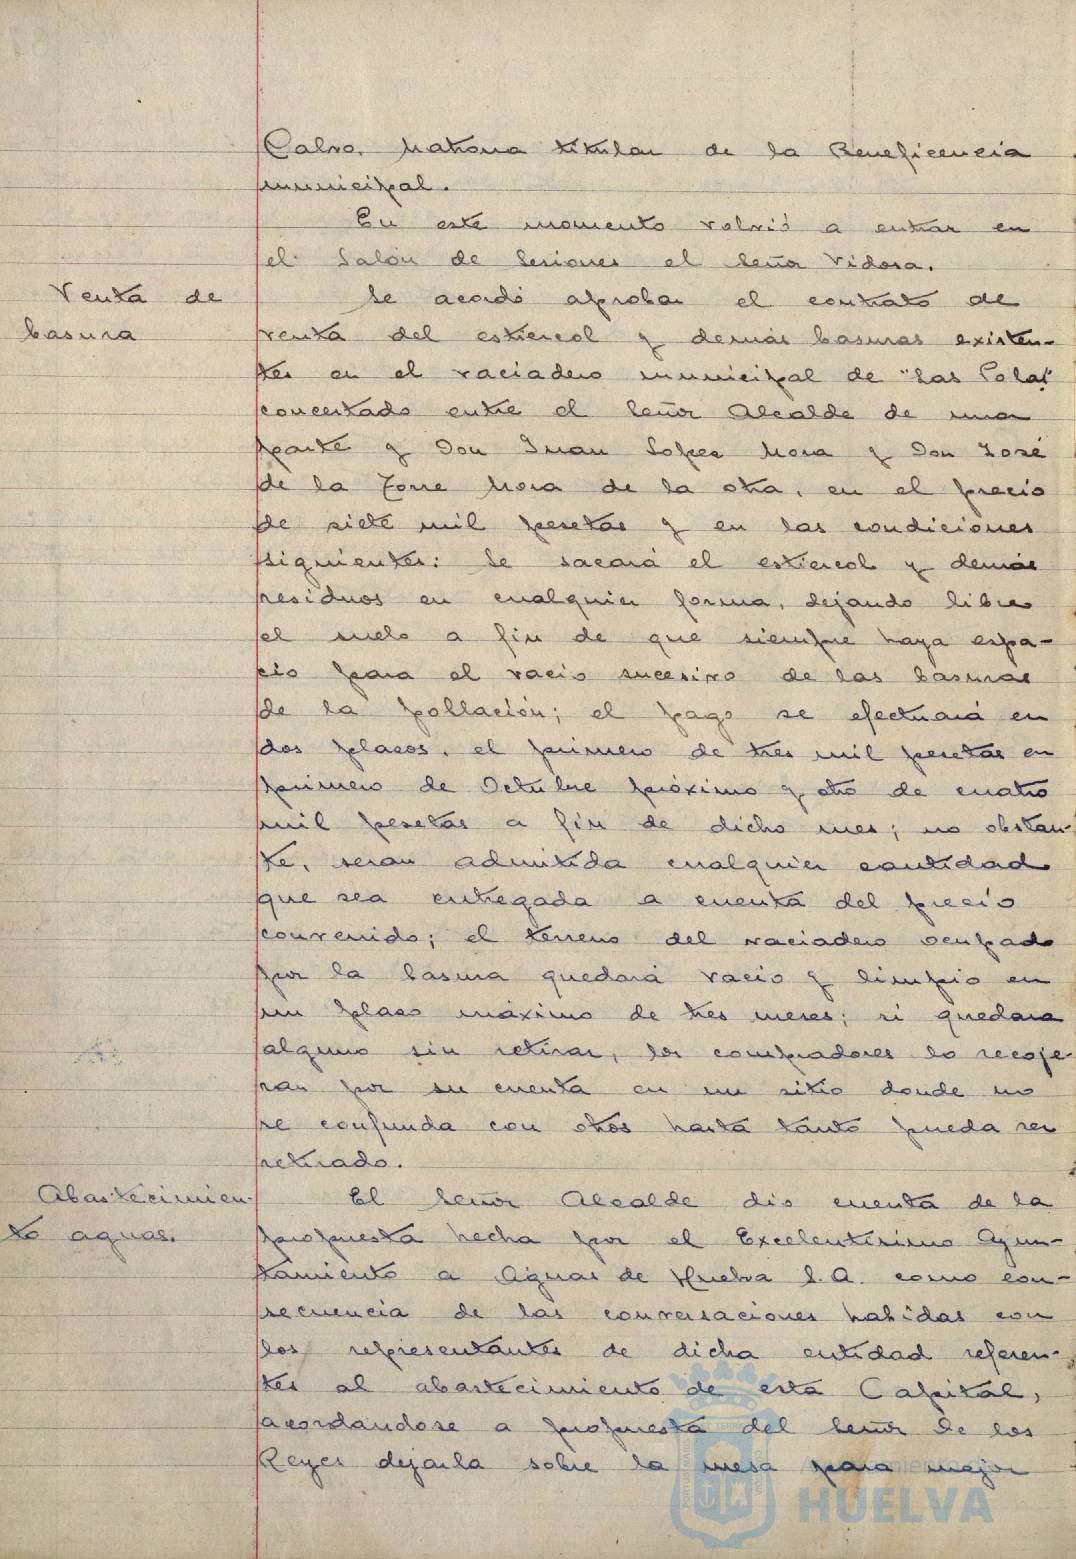 Calvo, Matrona titular de la Beneficencia
municipal.
En este momento volvió a entrar en
el Salón de Sesiones el Señor Vidosa.
Venta de
basura
Se acordó aprobar el contrato de
venta del estiercol y demás basuras existen-
tes en el vaciadero municipal de "Las Colas"
concertado entre el Señor Alcalde de una
parte y Don Juan Lopez Mora y Don José
de la Torre Mora de la otra, en el precio
de siete mil pesetas y en las condiciones
siguientes: Se sacará el estiercol y demás
residuos en cualquier forma, dejando libre
el suelo a fin de que siempre haya espa-
cio para el vacio sucesivo de las basuras
de la población; el pago se efectuará en
dos plazos, el primero de tres mil pesetas en
primero de Octubre próximo y otro de cuatro
mil pesetas a fin de dicho mes; no obstan-
te, seran admitida cualquier cantidad
que sea entregada a cuenta del precio
convenido; el terreno del vaciadero ocupado
por la basura quedará vacio y limpio en
un plazo máximo de tres meses; si quedara
alguno sin retirar, los compradores lo recoje-
ran por su cuenta en un sitio donde no
se confunda con otros hasta tanto pueda ser
retirado.
Abastecimien-
to aguas.
El Señor Alcalde dio cuenta de la
propuesta hecha por el Excelentisimo Ayun-
tamiento a Aguas de Huelva S.A. como con-
secuencia de las conversaciones habidas con
los representantes de dicha entidad referen-
tes al abastecimiento de esta Capital,
acordandose a propuesta del Señor De los
Reyes dejarla sobre la mesa para mejor
Ayuntamiento de
HUELVA